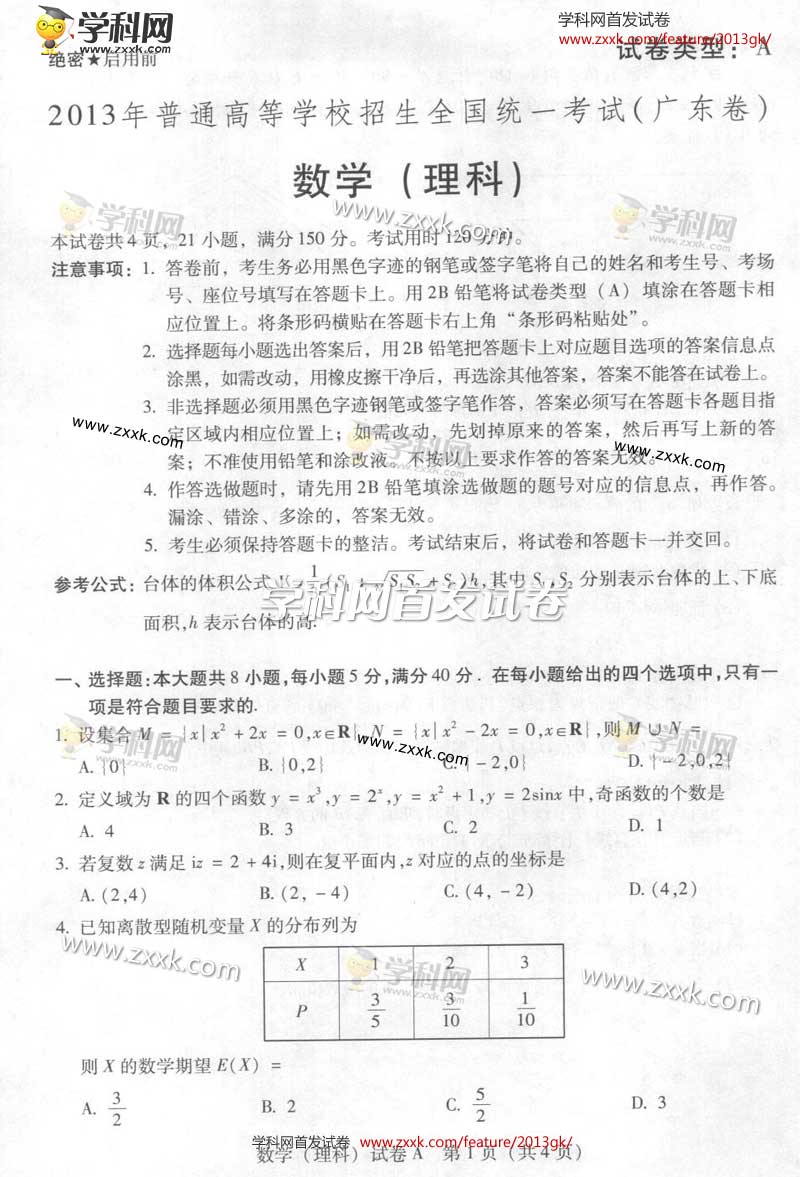 学科网
www.zxxk.com
学科网首发试卷
www.zxxk.com/feature/2013gk/
绝密★启用前
试卷类型：A
2013年普通高等学校招生全国统一考试(广东卷)
数学（理科）
学科网
www.zxxk.com
学科网
zxxk.com
本试卷共4页，21小题，满分150分。考试用时120分钟。
注意事项：1. 答卷前，考生务必用黑色字迹的钢笔或签字笔将自己的姓名和考生号、考场
号、座位号填写在答题卡上。用2B铅笔将试卷类型（A）填涂在答题卡相
应位置上。将条形码横贴在答题卡右上角“条形码粘贴处”。
2. 选择题每小题选出答案后，用2B铅笔把答题卡上对应题目选项的答案信息点
涂黑，如需改动，用橡皮擦干净后，再选涂其他答案，答案不能答在试卷上。
3. 非选择题必须用黑色字迹钢笔或签字笔作答，答案必须写在答题卡各题目指
定区域内相应位置上；如需改动，先划掉原来的答案，然后再写上新的答
案；不准使用铅笔和涂改液。不按以上要求作答的答案无效。
www.zxxk.com
学科网
www.zxxk.com
4. 作答选做题时，请先用2B铅笔填涂选做题的题号对应的信息点，再作答。
漏涂、错涂、多涂的，答案无效。
5. 考生必须保持答题卡的整洁。考试结束后，将试卷和答题卡一并交回。
参考公式：台体的体积公式V=1/3(S₁+√S₁S₂+S₂)h,其中S₁,S₂ 分别表示台体的上、下底
面积,h 表示台体的高.
学科网首发试卷
一、选择题:本大题共8小题,每小题5分,满分40分．在每小题给出的四个选项中,只有一
项是符合题目要求的.
1. 设集合 M = {x| x² + 2x = 0,x∈R}, N = {x| x² − 2x = 0,x∈R},则 M ∪ N =
A. {0} B. {0,2} C. {−2,0} D. {−2,0,2}
学科网
www.zxxk.com
学科网
zxxk.com
2. 定义域为 R 的四个函数 y = x³,y = 2ˣ,y = x² + 1,y = 2sinx 中,奇函数的个数是
A. 4 B. 3 C. 2 D. 1
3. 若复数 z 满足 iz = 2 + 4i,则在复平面内,z 对应的点的坐标是
A. (2,4) B. (2, −4) C. (4, −2) D. (4,2)
4. 已知离散型随机变量 X 的分布列为
www.zxxk.com
学科网
zxxk.com
www.zxxk.com
X 1 2 3
P 3/5 3/10 1/10
则 X 的数学期望 E(X) =
A. 3/2 B. 2 C. 5/2 D. 3
学科网首发试卷 www.zxxk.com/feature/2013gk/
数学（理科）试卷A 第1页（共4页）